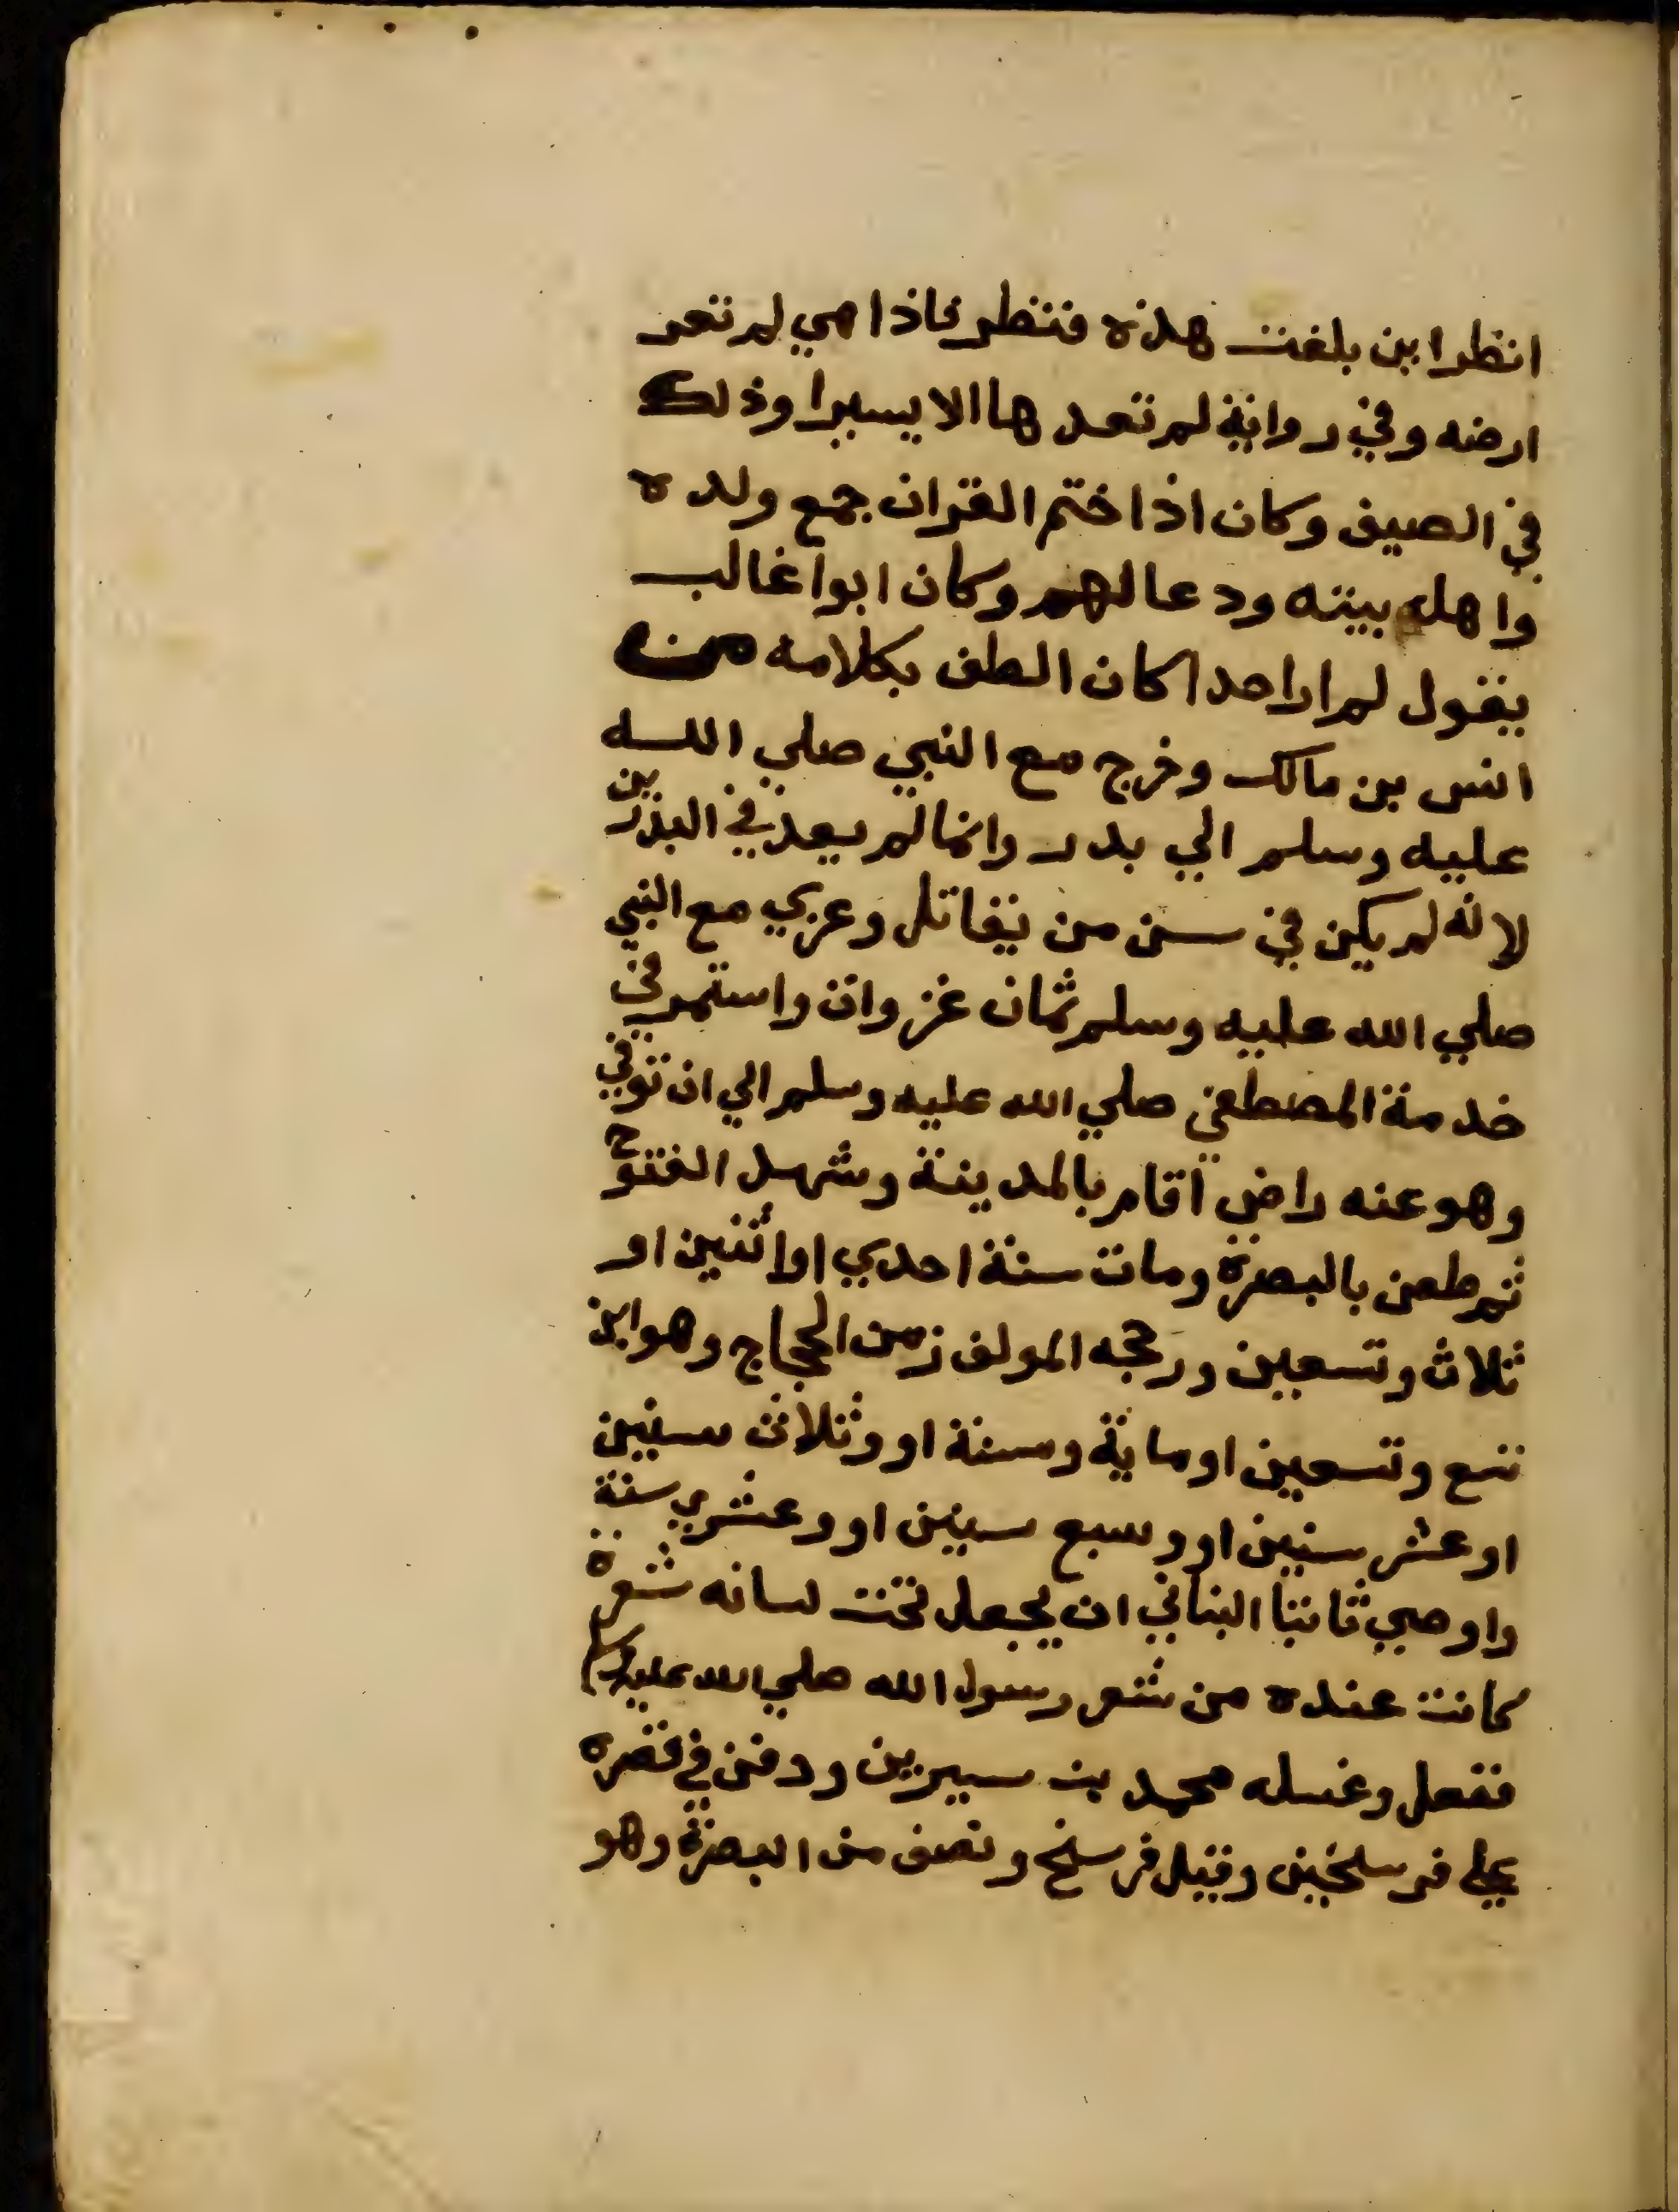 انظر اين بلغت هذه فنظر فاذا هي لم تعد
ارضه وفي رواية لم تعدها الا يسيرا وذلك
في الصيف وكان اذا ختم القران جمع ولده
واهل بيته ودعا لهم وكان ابوا غالب
يقول لم ار احدا كان الطف بكلامه من
انس بن مالك وخرج مع النبي صلي الله
عليه وسلم الي بدر وانما لم يعد في البدريين
لانه لم يكن في سن من يقاتل وغزي مع النبي
صلي الله عليه وسلم ثمان غزوات واستمر في
خدمة المصطفي صلي الله عليه وسلم الي ان توفي
وهو عنه راض اقام بالمدينة وشهد الفتوح
ثم طعن بالبصرة ومات سنة احدي او اثنين او
ثلاث وتسعين ورجحه المولف زمن الحجاج وهو ابن
تسع وتسعين او ماية وسنة او وثلاث سنين
او عشر سنين او وسبع سنين او وعشري سنة
واوصي ثابتا البناني ان يجعل تحت لسانه شعرة
كانت عنده من شعر رسول الله صلي الله عليه وسلم
ففعل وغسله محمد بن سيرين ودفن في قصره
علي فرسخين وقيل فرسخ ونصف من البصرة وهو